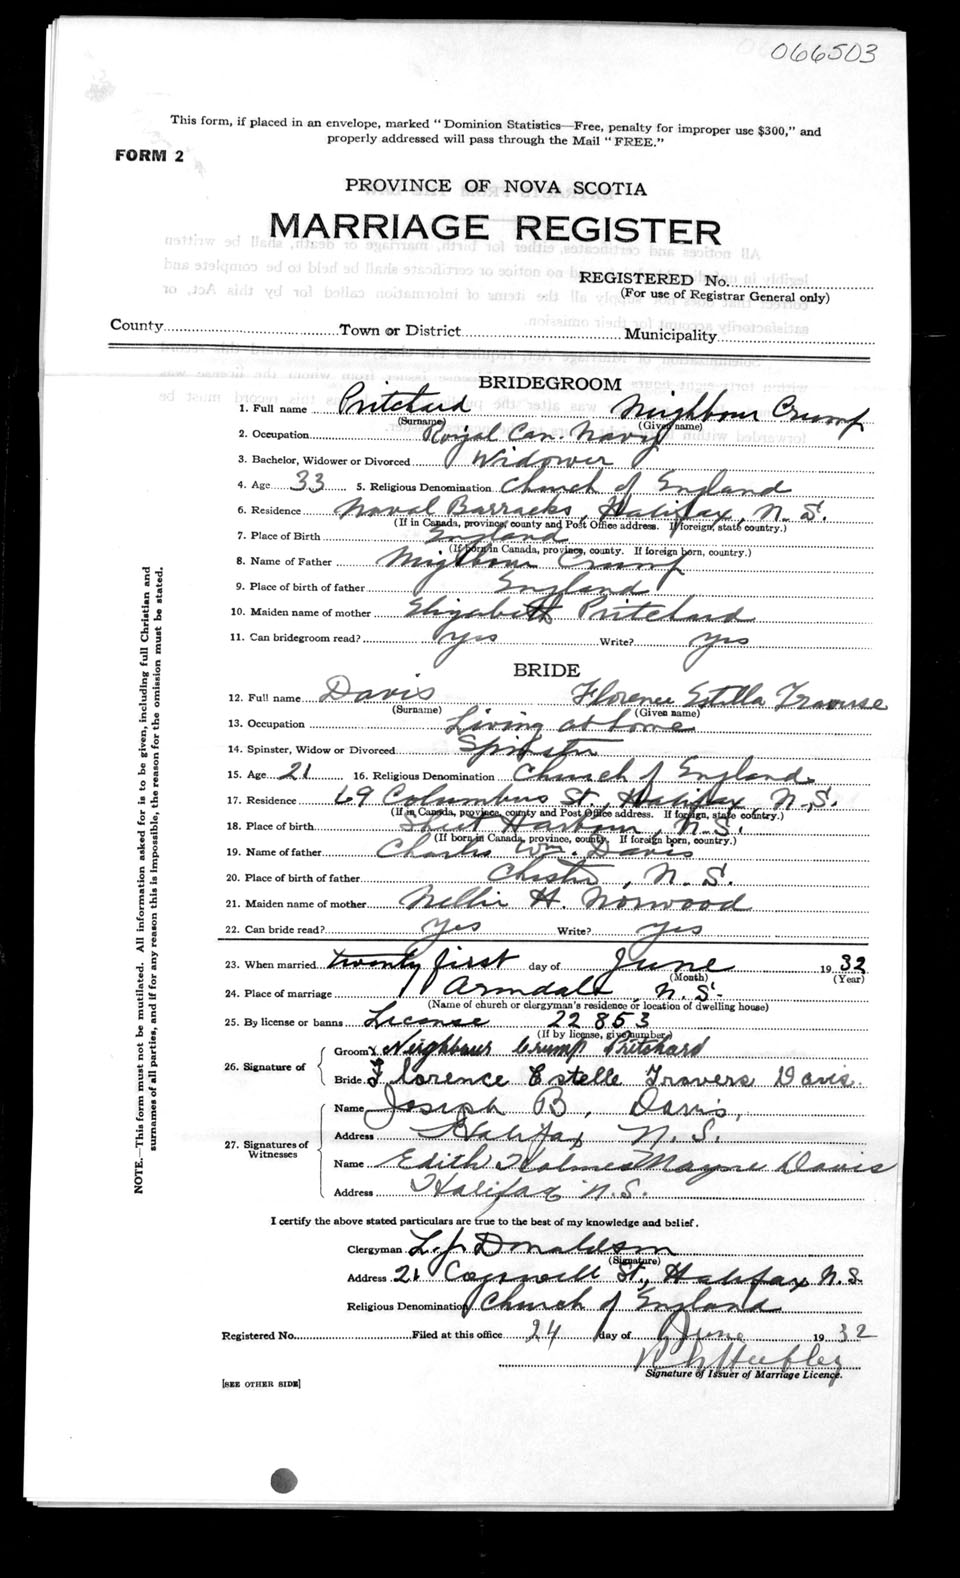 066503
This form, if placed in an envelope, marked "Dominion Statistics—Free, penalty for improper use $300," and
properly addressed will pass through the Mail "FREE."
FORM 2
PROVINCE OF NOVA SCOTIA
MARRIAGE REGISTER
REGISTERED No.
(For use of Registrar General only)
County Town or District Municipality
BRIDEGROOM
1. Full name Pritchard Neighbour Crump
(Surname) (Given name)
2. Occupation Royal Can. Navy
3. Bachelor, Widower or Divorced Widower
4. Age 33 5. Religious Denomination Church of England
6. Residence Naval Barracks, Halifax, N.S.
(If in Canada, province, county and Post Office address. If foreign, state country.)
7. Place of Birth England
(If born in Canada, province, county. If foreign born, country.)
8. Name of Father Neighbour Crump
9. Place of birth of father England
10. Maiden name of mother Elizabeth Pritchard
11. Can bridegroom read? yes Write? yes
BRIDE
12. Full name Davis Florence Estella Traverse
(Surname) (Given name)
13. Occupation Living at home
14. Spinster, Widow or Divorced Spinster
15. Age 21 16. Religious Denomination Church of England
17. Residence 69 Columbus St., Halifax, N.S.
(If in Canada, province, county and Post Office address. If foreign, state country.)
18. Place of birth Sheet Harbour, N.S.
(If born in Canada, province, county. If foreign born, country.)
19. Name of father Charles Wm. Davis
20. Place of birth of father Chester, N.S.
21. Maiden name of mother Nellie H. Norwood
22. Can bride read? yes Write? yes
23. When married twenty first day of June 1932
(Month) (Year)
24. Place of marriage Armdale N.S.
(Name of church or clergyman's residence or location of dwelling house)
25. By license or banns License 22853
(If by license, give number)
26. Signature of
Groom Neighbour Crump Pritchard
Bride Florence Estelle Travers Davis.
27. Signatures of Witnesses
Name Joseph B. Davis,
Address Halifax N.S.
Name Edith Holmes Mayne Davis
Address Halifax N.S.
I certify the above stated particulars are true to the best of my knowledge and belief.
Clergyman L. J. Donaldson
(Signature)
Address 21 Cogswell St., Halifax N.S.
Religious Denomination Church of England
Registered No. Filed at this office 24 day of June 1932
Signature of Issuer of Marriage Licence.
[SEE OTHER SIDE]
NOTE.—This form must not be mutilated. All information asked for is to be given, including full Christian and
surnames of all parties, and if for any reason this is impossible, the reason for the omission must be stated.